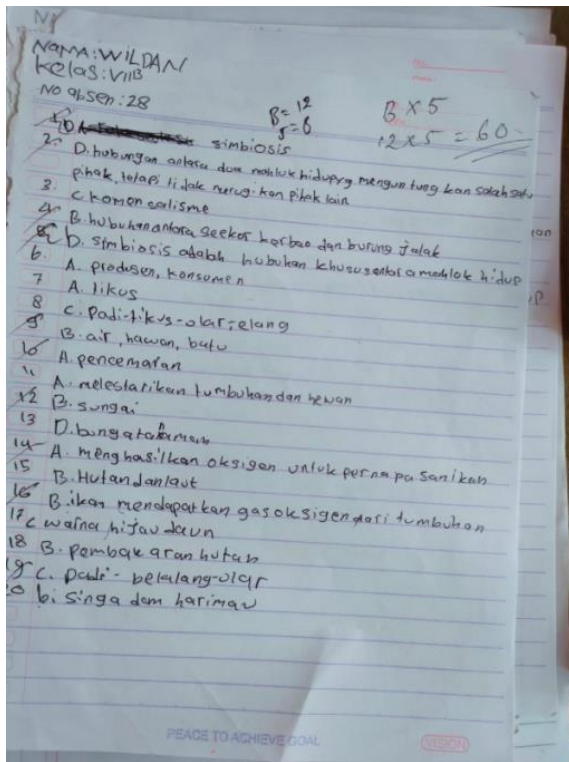 NAMA: WILDAN
Kelas: VIIB
No absen: 28
B = 12
S = 8
B x 5
12 x 5 = 60
1. D simbiosis
2. D. hubungan antara dua mahluk hidup yg mengun tung kan salah satu
pihak, tetapi tidak merugi kan pihak lain
3. C komen salisme
4. B. hubuhan antara seekor kerbao dan burung jalak
5. D. simbiosis adalah hubuhan khusus antara mahlok hidup
6. A. produsen, konsumen
7 A. tikus
8 C. padi-tikus-olar-elang
9 B. air, hawan, batu
10 A. pencemaran
11 A. melestarikan tumbuhan dan hewan
12 B. sungai
13 D. bunga
14 A. menghasilkan oksigen untuk perna pa san ikan
15 B. Hutan dan laut
16 B. ikan mendapat kan gas oksigen dari tumbuhan
17 C warna hijau daun
18 B. pembak aran hutan
19 C. padi - belalang-olar
20 b. singa dam harimau
PEACE TO ACHIEVE GOAL
VISION